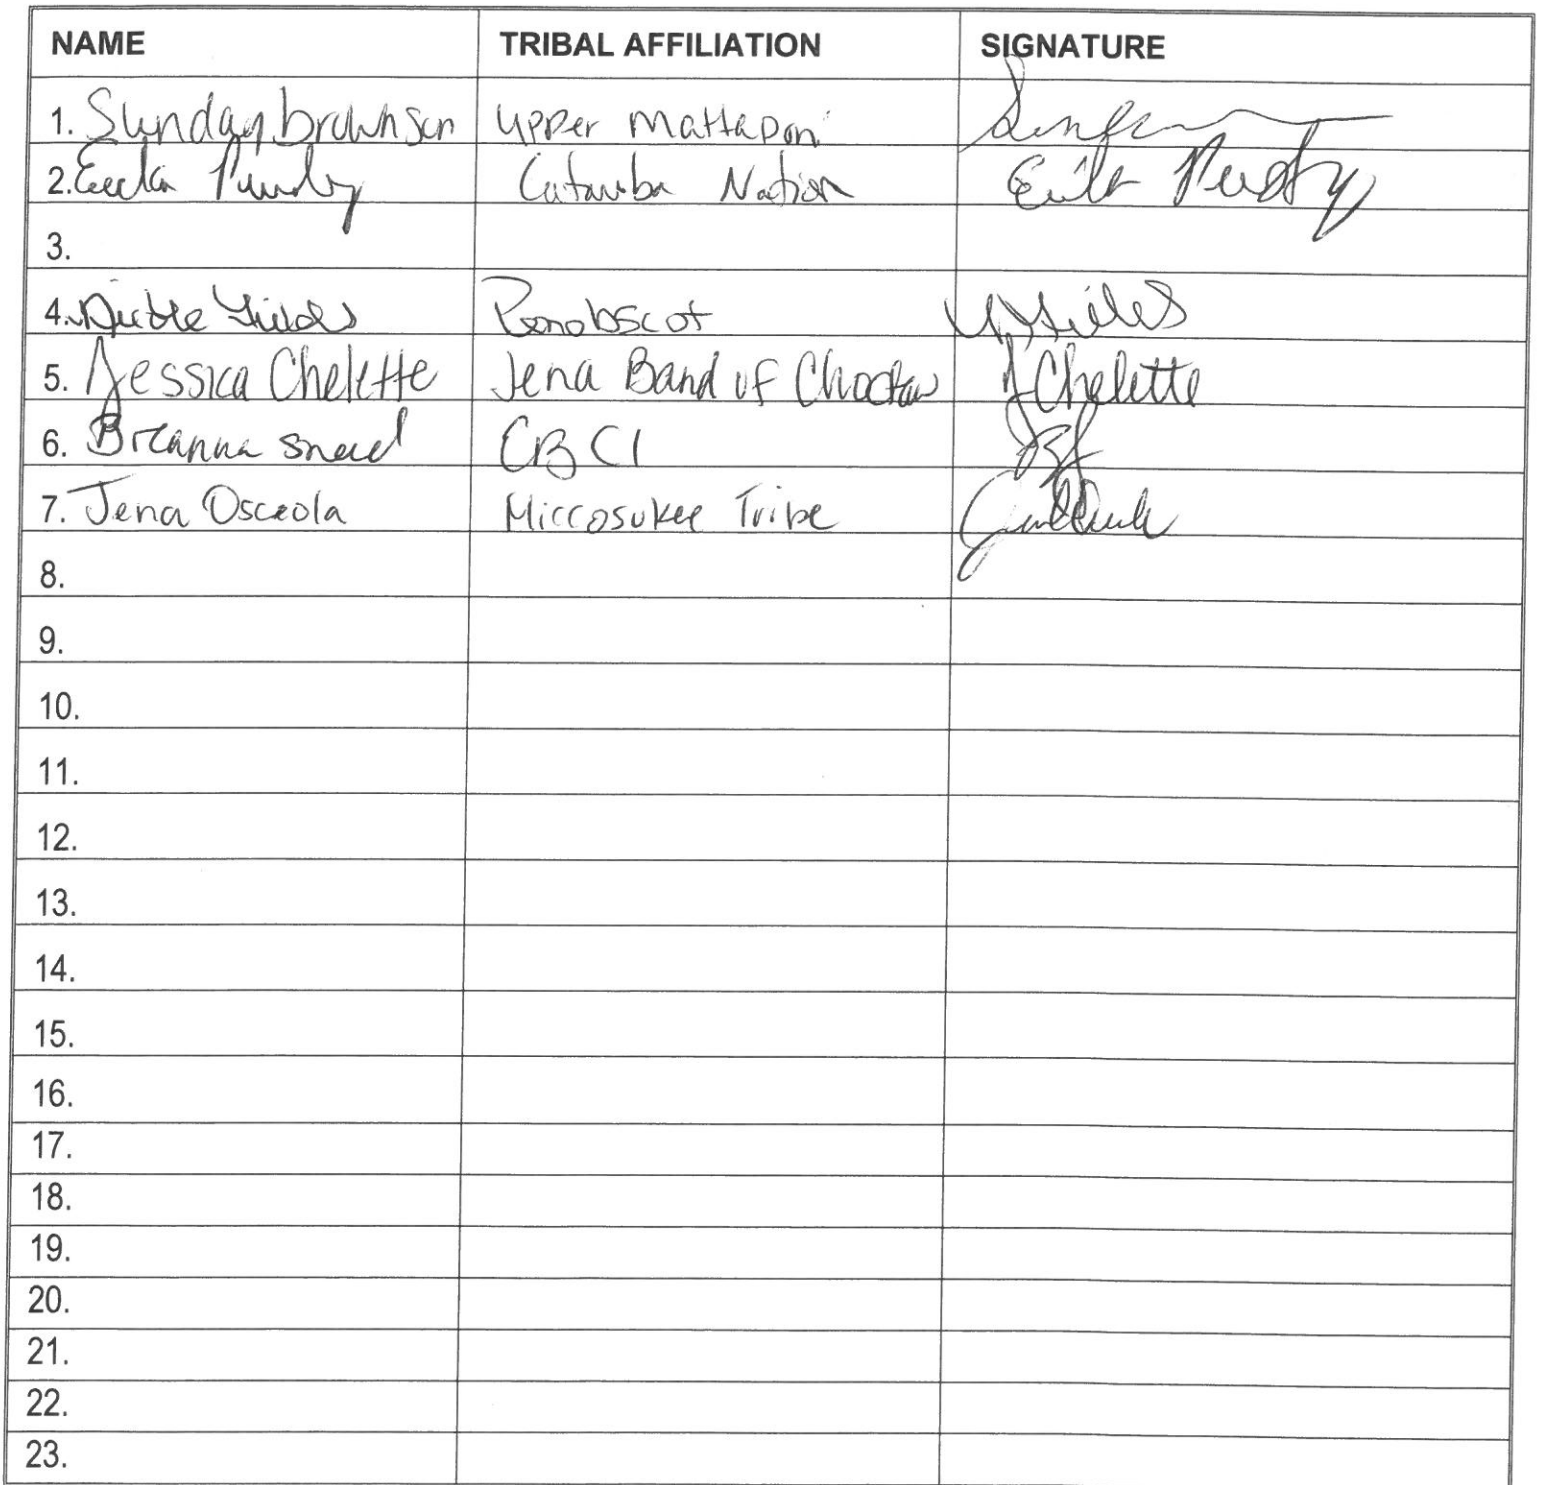 NAME TRIBAL AFFILIATION SIGNATURE
1. Sunday brownson Upper Mattaponi
2. Purdy Catawba Nation Purdy
3.
4. Penobscot
5. Jessica Chelette Jena Band of Choctaw J Chelette
6. Breanna sneed
7. Jena Osceola Miccosukee Tribe
8.
9.
10.
11.
12.
13.
14.
15.
16.
17.
18.
19.
20.
21.
22.
23.